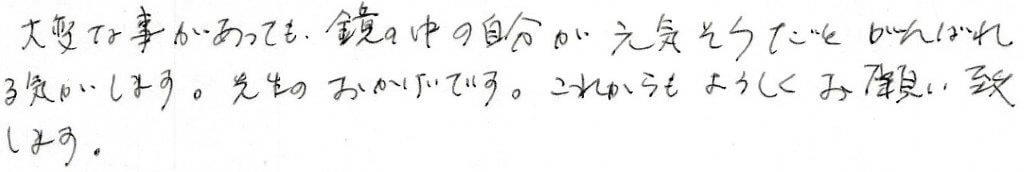 大変な事があっても、鏡の中の自分が元気そうだとがんばれ
る気がします。先生のおかげです。これからもよろしくお願い致
します。